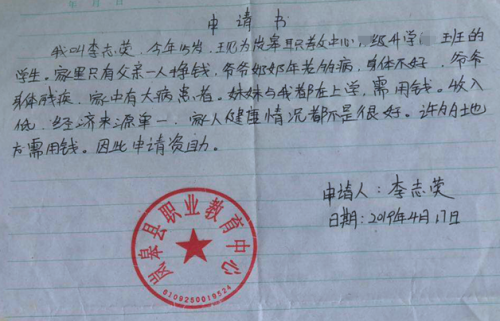 年 月 日
申请书
我叫李志荣，今年15岁，现为岚皋职教中心，级升学 班班的
学生。家里只有父亲一人挣钱，爷爷奶奶年老多病，身体不好，爷爷
身体残疾，家中有大病患者。妹妹与我都在上学，需用钱。收入
低，经济来源单一，家人健康情况都不是很好。许多地
方需用钱。因此申请资助。
申请人：李志荣
日期：2019年4月17日
岚皋县职业教育中心
6109250019524